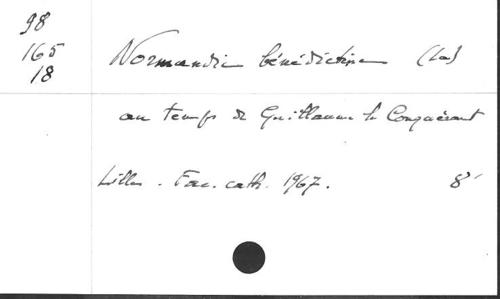 98
165
18
Normandie bénédictine (La)
au temps de Guillaume le Conquérant
Lille. Fac. cath. 1967. 8°